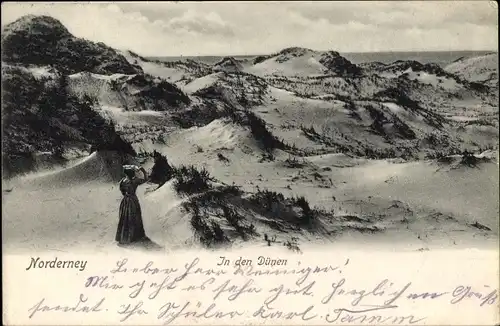 Norderney
In den Dünen
Lieber Herr Kenziger!
Mir geht es sehr gut. Herzlichen Gruß
sendet Ihr Schüler Karl Tamm